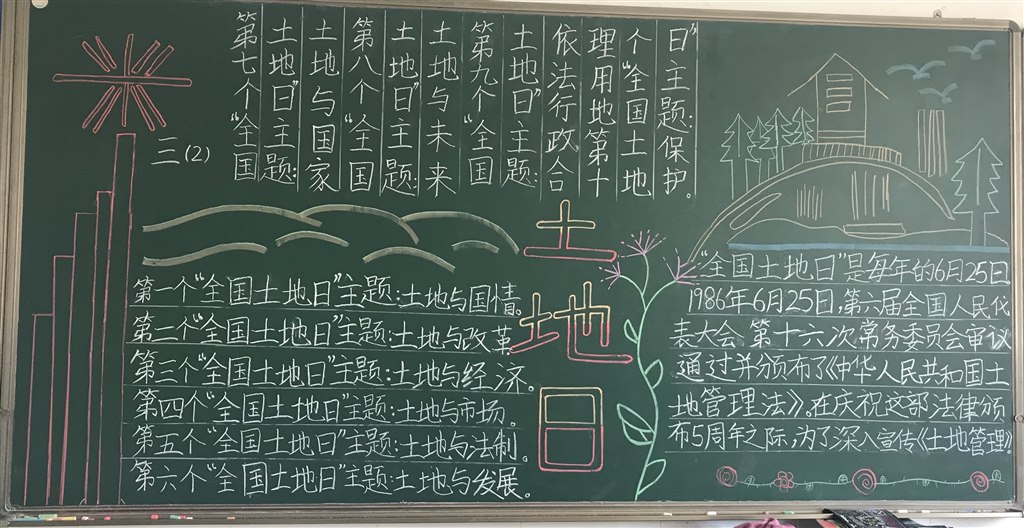 三(2)
第七个“全国
土地日”主题:
土地与国家
第八个“全国
土地日”主题:
土地与未来
第九个“全国
土地日”主题:
依法行政合
理用地第十
个“全国土地
日”主题:保护。
土
地
日
第一个“全国土地日”主题:土地与国情。
第二个“全国土地日”主题:土地与改革
第三个“全国土地日”主题:土地与经济.
第四个“全国土地日”主题:土地与市场。
第五个“全国土地日”主题:土地与法制。
第六个“全国土地日”主题:土地与发展。
“全国土地日”是每年的6月25日。
1986年6月25日,第六届全国人民代
表大会.第十六次常务委员会审议
通过并颁布了《中华人民共和国土
地管理法》。在庆祝这部法律颁
布5周年之际,为了深入宣传《土地管理》